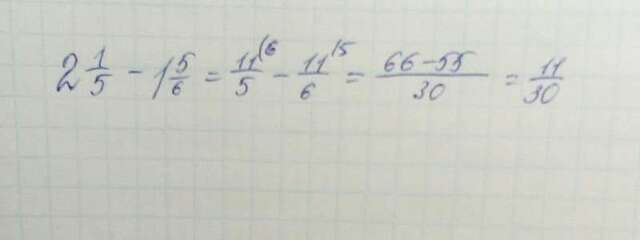 2 1/5 - 1 5/6 = 11/5 (6 - 11/6 /5 = 66-55/30 = 11/30